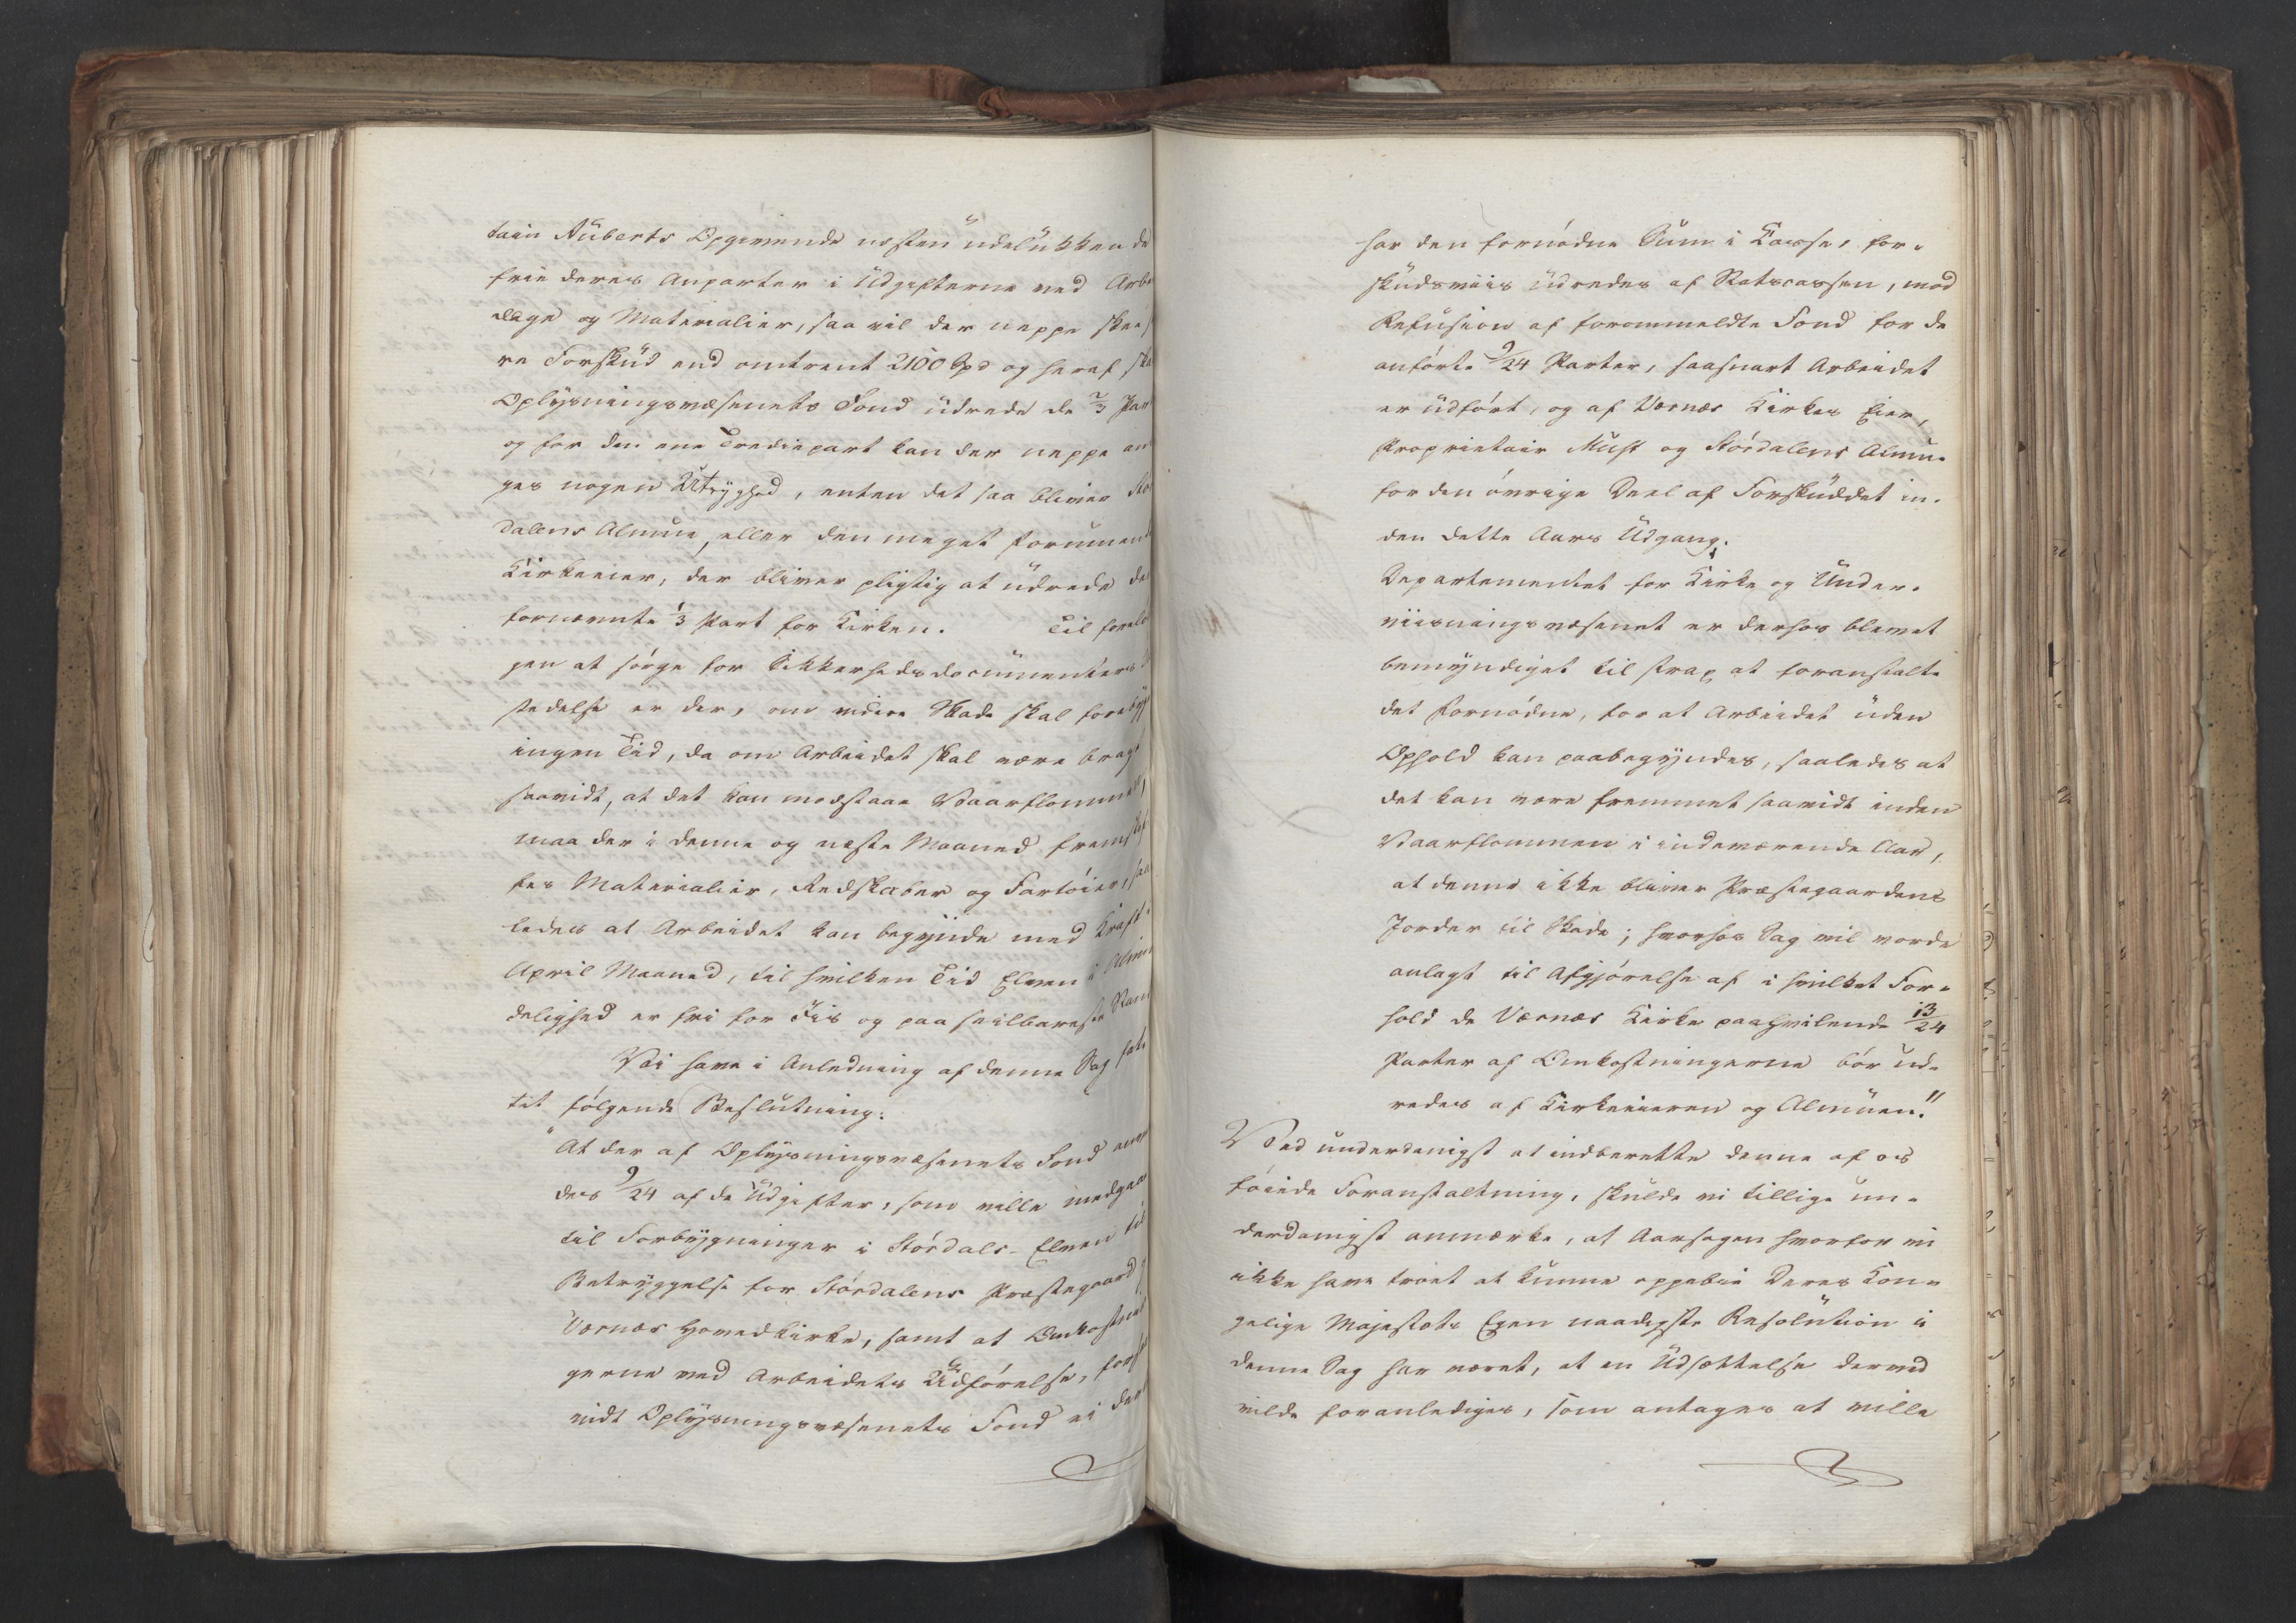 tain Auberts Opgivende næsten üdelükkende
frie deres Anparter i Üdgifterne ved Arbe
dage og Materialier, saa vil der neppe skee
re Forsküd end omtrent 2100 Spd og heraf ska
Oplysningsvæsenets Fond üdrede de 2/3 Par
og for den ene Trediepart kan der neppe an
ges nogen Utryghed, enten det saa bliver Stør
dalens Almue, eller den meget formuende
Kirkeeier, der bliver pligtig at üdrede de
fornævnte 1/3 Part for Kirken. Til forelø
gen at sørge for Sikkerhedsdocümenters
stedelse er der, om videre Skade skal forebyg
ingen Tid, da om Arbeidet skal være bragt
saavidt, at det kan modstaae Vaarflommen,
maa der i denne og næste Maaned fremskaf
fes Materialier, Redskaber og Fartøier, saa
ledes at Arbeidet kan begynde med Kraft i
April Maaned, til hvilken Tid Elven i Almin
delighed er fri for Iis og paa seilbareste Stand
Vi have i Anledning af denne Sag fat
tet følgende Beslütning:
"At der af Oplysningsvæsenets Fond anven
des 9/24 af de Üdgifter, som ville medgaae
til Forbygninger i Stördals-Elven til
Betryggelse for Stördalens Præstegaard og
Værnæs Hovedkirke, samt at Omkostnin
gerne ved Arbeidets Üdförelse, forsaa
vidt Oplysningsvæsenets Fond ei der
har den fornödne Süm i Kasse, for-
sküdsviis üdredes af Statscassen, mod
Refüsion af forommeldte Fond for de
anförte 9/24 Parter, saasnart Arbeidet
er üdfört, og af Værnæs Kirkes Eier,
Proprietair Müst og Stördalens Almu-
for den övrige Deel af Forsküddet in-
den dette Aars Üdgang.
Departementet for Kirke og Ünder-
viisningsvæsenet er derhos blevet
bemyndiget til strax at foranstalte
det Fornödne, for at Arbeidet üden
Ophold kan paabegyndes, saaledes at
det kan være fremmet saavidt inden
Vaarflommen i indeværende Aar,
at denne ikke bliver Præstegaardens
Jorder til Skade; hvorhos Sag vil vorde
anlagt til Afgjörelse af i hvilket For-
hold de Værnæs Kirke paahvilende 13/24
Parter af Omkostningerne bör üd-
redes af Kirkeeieren og Almüen."
Ved underdanigst at indberette denne af os
föiede Foranstaltning, skülde vi tillige un-
derdanigst anmærke, at Aarsagen hvorfor vi
ikke have troet at kunne oppebie Deres Kon-
gelige Majestæts Egen naadigste Resolütion i
denne Sag har været, at en Üdsættelse derved
vilde foranlediges, som antages at ville